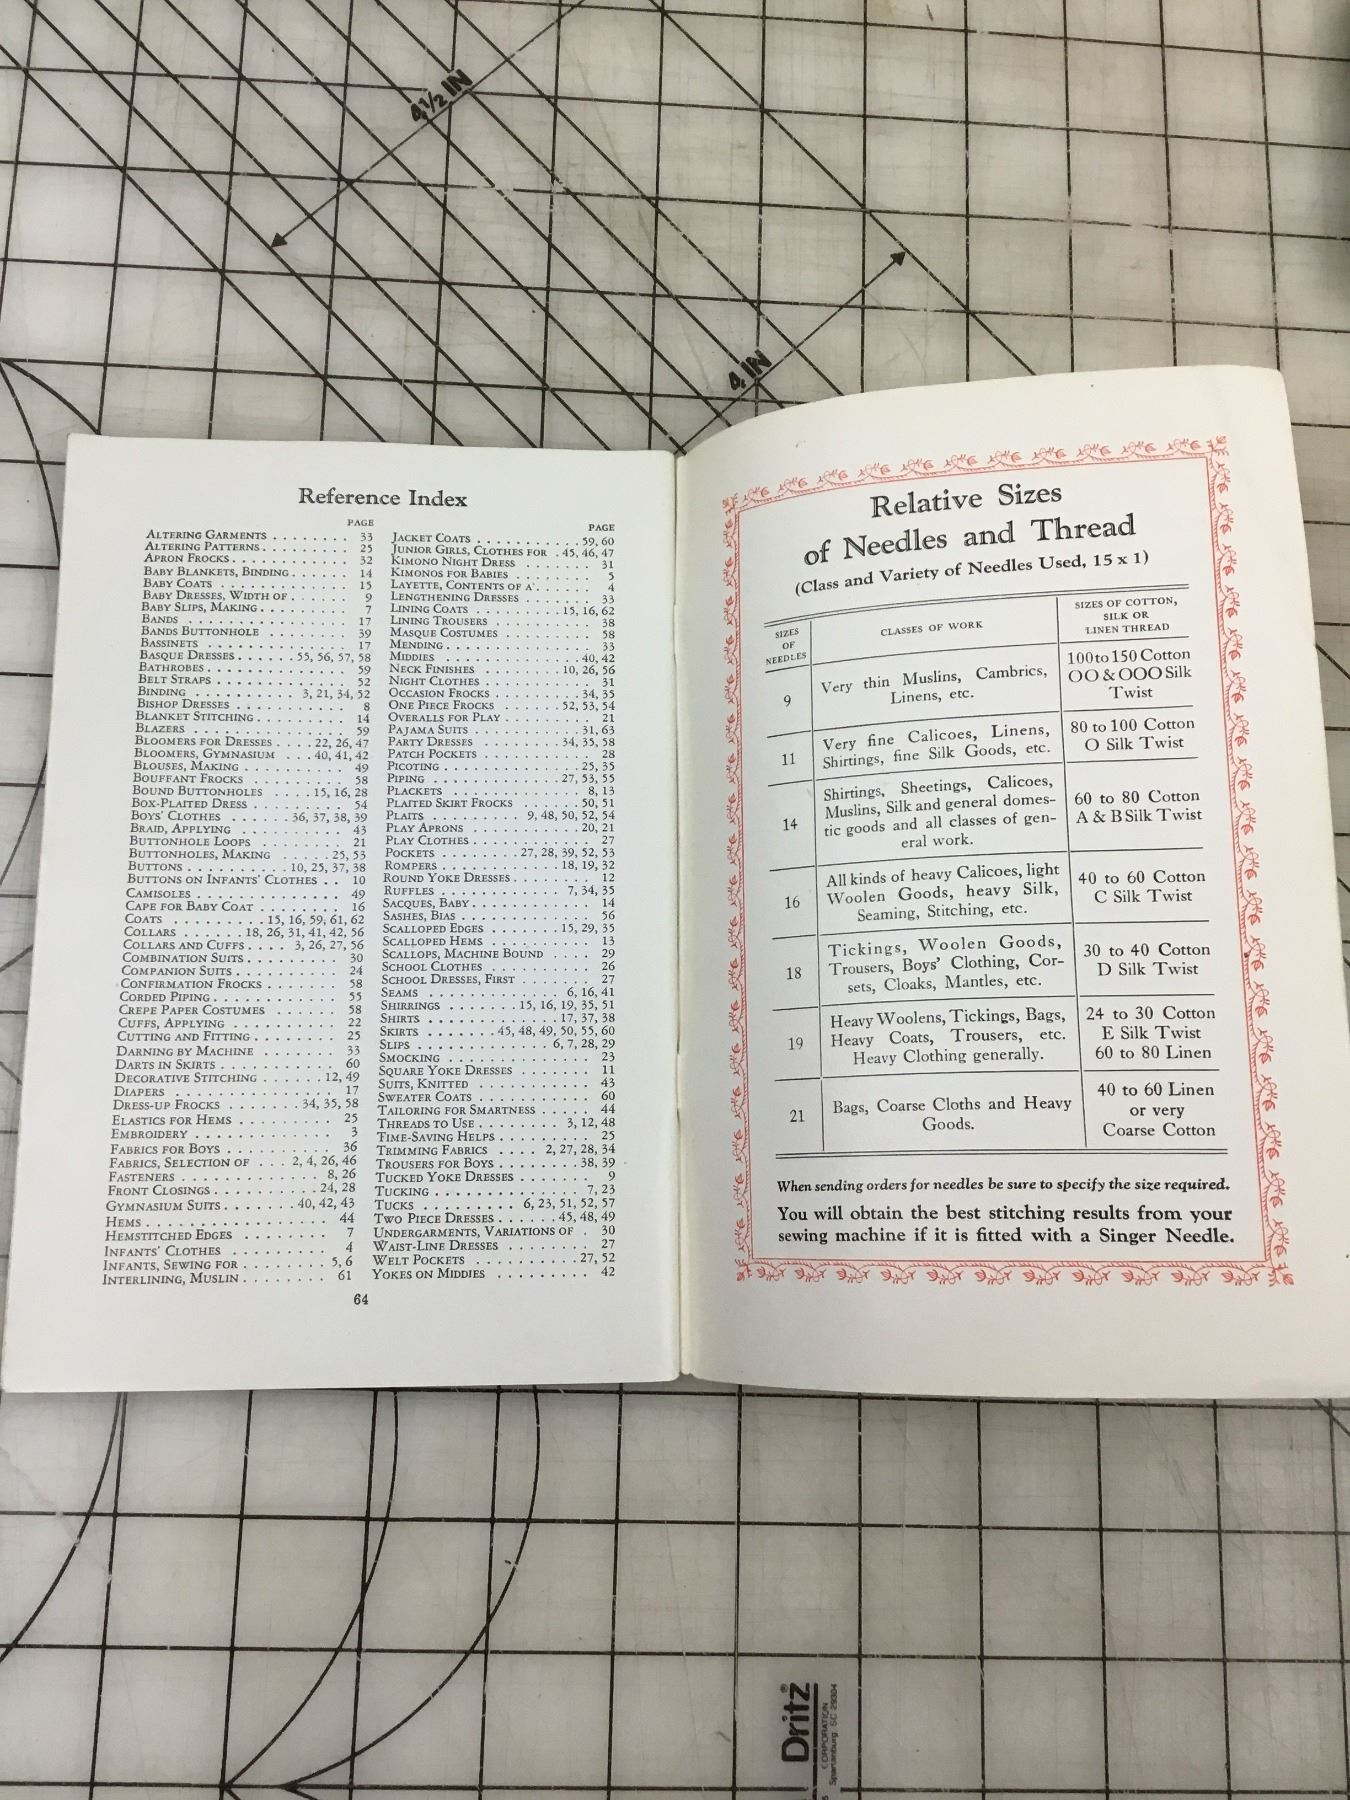 4½ IN
4 IN
Reference Index
PAGE
ALTERING GARMENTS . . . . . . . . 33
ALTERING PATTERNS . . . . . . . . . 25
APRON FROCKS . . . . . . . . . . . . 32
BABY BLANKETS, BINDING . . . . . . 14
BABY COATS . . . . . . . . . . . . . 15
BABY DRESSES, WIDTH OF . . . . . . 9
BABY SLIPS, MAKING . . . . . . . . . 7
BANDS . . . . . . . . . . . . . . . . 17
BANDS BUTTONHOLE . . . . . . . . 39
BASSINETS . . . . . . . . . . . . . . 17
BASQUE DRESSES . . . . . . 55, 56, 57, 58
BATHROBES . . . . . . . . . . . . . . 59
BELT STRAPS . . . . . . . . . . . . . 52
BINDING . . . . . . . . . . 3, 21, 34, 52
BISHOP DRESSES . . . . . . . . . . . 8
BLANKET STITCHING . . . . . . . . . 14
BLAZERS . . . . . . . . . . . . . . . 59
BLOOMERS FOR DRESSES . . . . 22, 26, 47
BLOOMERS, GYMNASIUM . . . 40, 41, 42
BLOUSES, MAKING . . . . . . . . . . 49
BOUFFANT FROCKS . . . . . . . . . . 58
BOUND BUTTONHOLES . . . . 15, 16, 28
BOX-PLAITED DRESS . . . . . . . . . 54
BOYS' CLOTHES . . . . . . 36, 37, 38, 39
BRAID, APPLYING . . . . . . . . . . 43
BUTTONHOLE LOOPS . . . . . . . . . 21
BUTTONHOLES, MAKING . . . . . 25, 53
BUTTONS . . . . . . . . . 10, 25, 37, 38
BUTTONS ON INFANTS' CLOTHES . . 10
CAMISOLES . . . . . . . . . . . . . . 49
CAPE FOR BABY COAT . . . . . . . . 16
COATS . . . . . . . . 15, 16, 59, 61, 62
COLLARS . . . . . . 18, 26, 31, 41, 42, 56
COLLARS AND CUFFS . . . . 3, 26, 27, 56
COMBINATION SUITS . . . . . . . . . 30
COMPANION SUITS . . . . . . . . . . 24
CONFIRMATION FROCKS . . . . . . . . 58
CORDED PIPING . . . . . . . . . . . . 55
CREPE PAPER COSTUMES . . . . . . 58
CUFFS, APPLYING . . . . . . . . . . 22
CUTTING AND FITTING . . . . . . . . 25
DARNING BY MACHINE . . . . . . . 33
DARTS IN SKIRTS . . . . . . . . . . . 60
DECORATIVE STITCHING . . . . . . 12, 49
DIAPERS . . . . . . . . . . . . . . . 17
DRESS-UP FROCKS . . . . . . . 34, 35, 58
ELASTICS FOR HEMS . . . . . . . . . 25
EMBROIDERY . . . . . . . . . . . . . 3
FABRICS FOR BOYS . . . . . . . . . . 36
FABRICS, SELECTION OF . . . 2, 4, 26, 46
FASTENERS . . . . . . . . . . . . . 8, 26
FRONT CLOSINGS . . . . . . . . . 24, 28
GYMNASIUM SUITS . . . . . . . 40, 42, 43
HEMS . . . . . . . . . . . . . . . . . 44
HEMSTITCHED EDGES . . . . . . . . 7
INFANTS' CLOTHES . . . . . . . . . 4
INFANTS, SEWING FOR . . . . . . . . 5, 6
INTERLINING, MUSLIN . . . . . . . . 61
PAGE
JACKET COATS . . . . . . . . . . . 59, 60
JUNIOR GIRLS, CLOTHES FOR . 45, 46, 47
KIMONO NIGHT DRESS . . . . . . . 31
KIMONOS FOR BABIES . . . . . . . . 5
LAYETTE, CONTENTS OF A . . . . . . 4
LENGTHENING DRESSES . . . . . . . 33
LINING COATS . . . . . . . . 15, 16, 62
LINING TROUSERS . . . . . . . . . . 38
MASQUE COSTUMES . . . . . . . . . 58
MENDING . . . . . . . . . . . . . . . 33
MIDDIES . . . . . . . . . . . . . 40, 42
NECK FINISHES . . . . . . . . 10, 26, 56
NIGHT CLOTHES . . . . . . . . . . . 31
OCCASION FROCKS . . . . . . . . 34, 35
ONE PIECE FROCKS . . . . . . 52, 53, 54
OVERALLS FOR PLAY . . . . . . . . . 21
PAJAMA SUITS . . . . . . . . . . 31, 63
PARTY DRESSES . . . . . . . . 34, 35, 58
PATCH POCKETS . . . . . . . . . . . 28
PICOTING . . . . . . . . . . . . . 25, 35
PIPING . . . . . . . . . . . . 27, 53, 55
PLACKETS . . . . . . . . . . . . . 8, 13
PLAITED SKIRT FROCKS . . . . . . 50, 51
PLAITS . . . . . . . . . 9, 48, 50, 52, 54
PLAY APRONS . . . . . . . . . . . 20, 21
PLAY CLOTHES . . . . . . . . . . . . 27
POCKETS . . . . . . . . 27, 28, 39, 52, 53
ROMPERS . . . . . . . . . . . 18, 19, 32
ROUND YOKE DRESSES . . . . . . . . 12
RUFFLES . . . . . . . . . . . . 7, 34, 35
SACQUES, BABY . . . . . . . . . . . . 14
SASHES, BIAS . . . . . . . . . . . . . 56
SCALLOPED EDGES . . . . . . . 15, 29, 35
SCALLOPED HEMS . . . . . . . . . . 13
SCALLOPS, MACHINE BOUND . . . . 29
SCHOOL CLOTHES . . . . . . . . . . 26
SCHOOL DRESSES, FIRST . . . . . . . 27
SEAMS . . . . . . . . . . . . . 6, 16, 41
SHIRRINGS . . . . . . . 15, 16, 19, 35, 51
SHIRTS . . . . . . . . . . . . 17, 37, 38
SKIRTS . . . . . . . 45, 48, 49, 50, 55, 60
SLIPS . . . . . . . . . . . . . 6, 7, 28, 29
SMOCKING . . . . . . . . . . . . . . 23
SQUARE YOKE DRESSES . . . . . . . . 11
SUITS, KNITTED . . . . . . . . . . . 43
SWEATER COATS . . . . . . . . . . . 60
TAILORING FOR SMARTNESS . . . . . 44
THREADS TO USE . . . . . . . . 3, 12, 48
TIME-SAVING HELPS . . . . . . . . . 25
TRIMMING FABRICS . . . . 2, 27, 28, 34
TROUSERS FOR BOYS . . . . . . . . 38, 39
TUCKED YOKE DRESSES . . . . . . . 9
TUCKING . . . . . . . . . . . . . . 7, 23
TUCKS . . . . . . . . . 6, 23, 51, 52, 57
TWO PIECE DRESSES . . . . . . 45, 48, 49
UNDERGARMENTS, VARIATIONS OF . 30
WAIST-LINE DRESSES . . . . . . . . . 27
WELT POCKETS . . . . . . . . . . 27, 52
YOKES ON MIDDIES . . . . . . . . . 42
64
Relative Sizes
of Needles and Thread
(Class and Variety of Needles Used, 15 x 1)
SIZES OF NEEDLES
CLASSES OF WORK
SIZES OF COTTON,
SILK OR
LINEN THREAD
9
Very thin Muslins, Cambrics,
Linens, etc.
100 to 150 Cotton
OO & OOO Silk
Twist
11
Very fine Calicoes, Linens,
Shirtings, fine Silk Goods, etc.
80 to 100 Cotton
O Silk Twist
14
Shirtings, Sheetings, Calicoes,
Muslins, Silk and general domes-
tic goods and all classes of gen-
eral work.
60 to 80 Cotton
A & B Silk Twist
16
All kinds of heavy Calicoes, light
Woolen Goods, heavy Silk,
Seaming, Stitching, etc.
40 to 60 Cotton
C Silk Twist
18
Tickings, Woolen Goods,
Trousers, Boys' Clothing, Cor-
sets, Cloaks, Mantles, etc.
30 to 40 Cotton
D Silk Twist
19
Heavy Woolens, Tickings, Bags,
Heavy Coats, Trousers, etc.
Heavy Clothing generally.
24 to 30 Cotton
E Silk Twist
60 to 80 Linen
21
Bags, Coarse Cloths and Heavy
Goods.
40 to 60 Linen
or very
Coarse Cotton
When sending orders for needles be sure to specify the size required.
You will obtain the best stitching results from your
sewing machine if it is fitted with a Singer Needle.
Dritz®
CORPORATION
Spartanburg, SC 29304